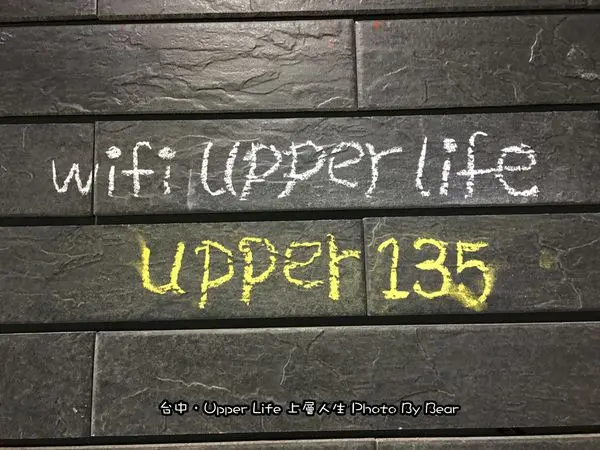 wifi Upper Life
upper 135
台中·Upper Life 上層人生 Photo By Bear